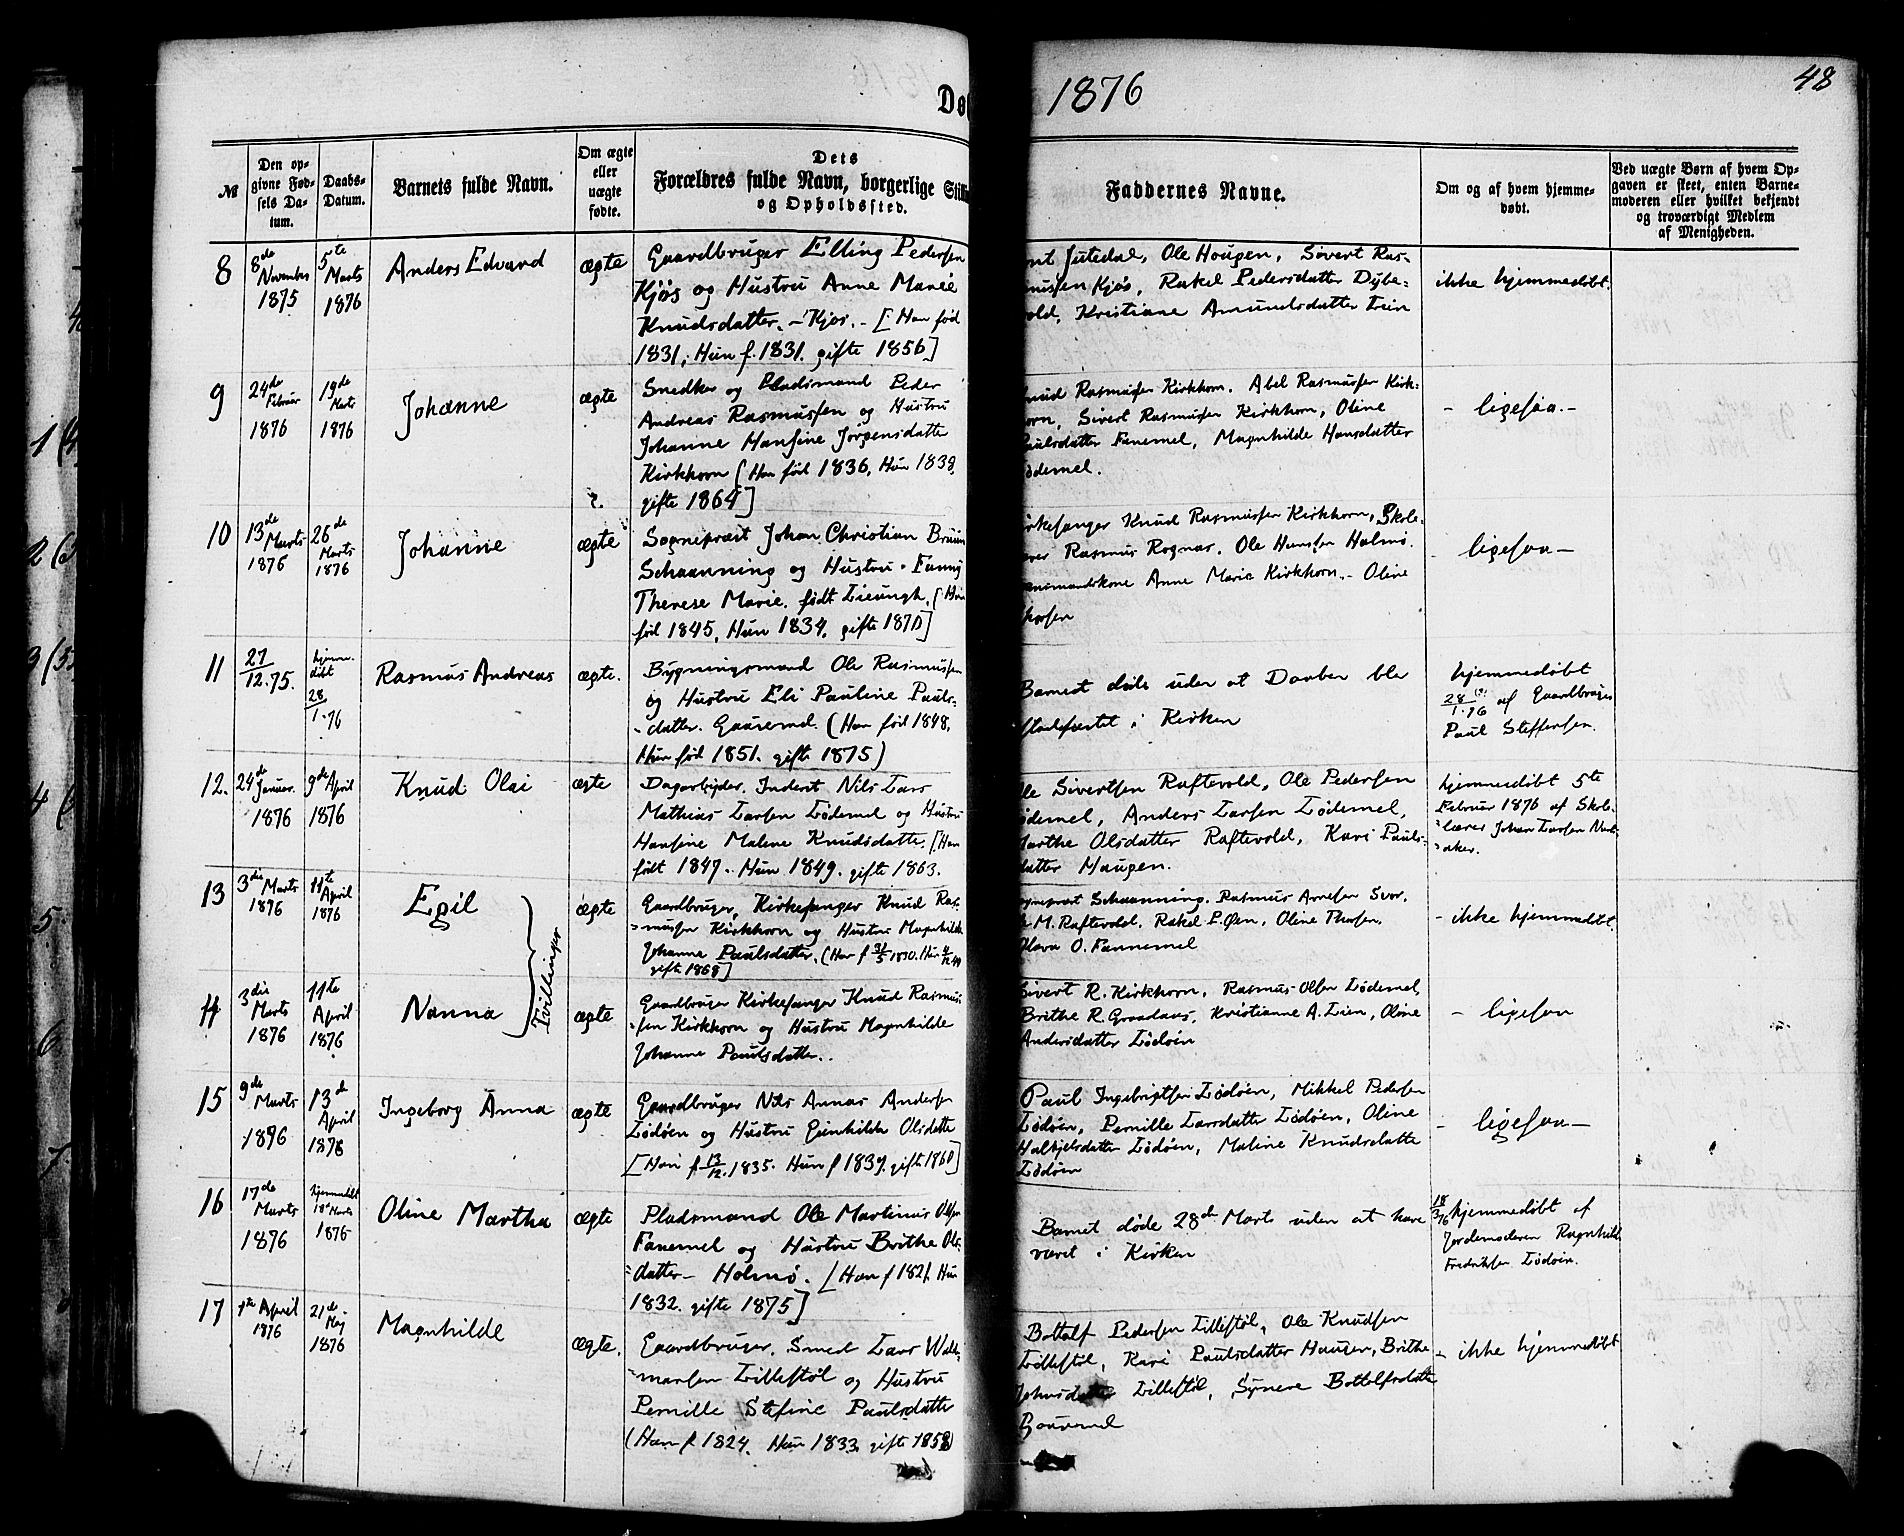 Dø
1876
48
№
Den op-
givne Fød-
sels Da-
tum.
Daabs-
Datum.
Barnets fulde Navn.
Om ægte
eller
uægte
fødte.
Dets
Forældres fulde Navn, borgerlige Stil
og Opholdssted.
Faddernes Navne.
Om og af hvem hjemme-
døbt.
Ved uægte Børn af hvem Op-
gaven er skeet, enten Barne-
moderen eller hvilket bekjendt
og troværdigt Medlem
af Menigheden.
8
8de
November
1875
5te
Marts
1876
Anders Edvard
ægte
Gaardbruger Elling Pedersen
Kjøs og Hustru Anne Marie
Knudsdatter. - Kjøs. - [Han fød
1831, Hun f. 1831. gifte 1856]
Jutedal, Ole Hougen, Sivert Ras-
mussen Kjøs, Rakel Pedersdatter Dybe-
vold, Kristiane Amundsdatter Lien
ikke hjemmedøbt.
9
24de
Februar
1876
19de
Marts
1876
Johanne
ægte
Snedker og Pladsmand Peder
Andreas Rasmussen og Hustru
Johanne Hansine Jørgensdatter
Kirkhorn [Han fød 1836, Hun 1838,
gifte 1864]
Knud Rasmussen Kirkhorn. Abel Rasmussen Kirk-
horn, Sivert Rasmussen Kirkhorn, Oline
Paulsdatter Fanemel, Magnhilde Hansdatter
Lødemel.
- ligesaa. -
10
13de
Marts
1876
26de
Marts
1876
Johanne
ægte
Sognepræst Johan Christian Bruun
Schaanning og Hustru Fanny
Therese Marie, født Lieungh. [Han
fød 1845, Hun 1834. gifte 1870]
Kirkesanger Knud Rasmussen Kirkhorn, Skole-
lærer Rasmus Rognar. Ole Hansen Holmø.
Lensmandskone Anne Marie Kirkhorn. - Oline
Thorsen
ligesaa -
11
27
12.75.
hjemme-
døbt
28
1.76
Rasmus Andreas
ægte.
Bygningsmand Ole Rasmussen
og Hustru Eli Pauline Pauls-
datter. Gauremel. (Han fød 1848,
Hun fød 1851. gifte 1875)
Barnet døde uden at Daaben blev
stadfæstet i Kirken
hjemmedøbt
28
1.76 af Gaardbruger
Paul Steffensen.
12.
24de
Januar
1876
9de April
1876
Knud Olai
ægte
Dagarbeider. Inderst Nils Lars
Mathias Larsen Lødemel og Hustru
Hansine Malene Knudsdatter. [Han
født 1847. Hun 1849. gifte 1863.
Ole Sivertsen Raftevold, Ole Pedersen
Lødemel, Anders Larsen Lødemel,
Marthe Olsdatter Raftevold, Kari Pauls-
datter Haugen.
hjemmedøbt 5te
Februar 1876 af Skole-
lærer Johan Larsen Nord-
aker.
13
3die Marts
1876
11te
April
1876
Egil
ægte
Gaardbruger, Kirkesanger Knud Ras-
mussen Kirkhorn og Hustru Magnhilde
Johanne Paulsdatter. (Han f 31/5 1830. Hun
gifte 1868]
Sognepræst Schaanning. Rasmus Arnesen Svor,
M. Raftevold. Rakel E. Øen, Oline Thorsen.
Olava O. Fannemel
- ikke hjemmedøbt.
Tvillinger
14
3die
Marts
1876
11te
April
1876
Nanna
ægte
Gaardbruger Kirkesanger Knud Rasmus-
sen Kirkhorn og Hustru Magnhilde
Johanne Paulsdatter.
Sivert R. Kirkhorn, Rasmus Olsen Lødemel,
Brithe R. Graadaas, Kristianne A. Lien, Oline
Andersdatter Lødøin
- ligesaa
15
9de
Marts
1876
13de
April
1876
Ingeborg Anna
ægte
Gaardbruger Nils Annas Andersen
Lødøen og Hustru Gunhilde Olsdatter
[Han f 13/12. 1835. Hun f 1839. gifte 1860]
Paul Ingebrigtsen Lødøen, Mikkel Pedersen
Lødøen, Pernille Larsdatter Lødøen, Oline
Halkjelsdatter Lødøen, Maline Knudsdatter
Lødøen
- ligesaa -
16
17de
Marts
1876
hjemmedøbt
18de Marts
1876
Oline Martha
ægte
Pladsmand Ole Martinus Olsen
Fanemel og Hustru Brithe Ols-
datter - Holmø. [Han f 1821. Hun
1832. gifte 1875]
Barnet døde 28de Marts uden at have
været i Kirken
18
3.76
hjemmedøbt af
Jordemoderen Ragnhild
Fredriksen Lødøin.
17
1ste April
1876
21de
Maj
1876
Magnhilde
ægte.
Gaardbruger. Smed Lars Wold-
marsen Lillestøl og Hustru
Pernille Stefine Paulsdatter
(Han f 1824. Hun 1833. gifte 1858)
Bottolf Pedersen Lillestøl, Ole Knudsen
Lillestøl, Kari Paulsdatter Haugen, Brithe
Johnsdatter Lillestøl, Synneve Bottolfsdatter
- ikke hjemmedøbt